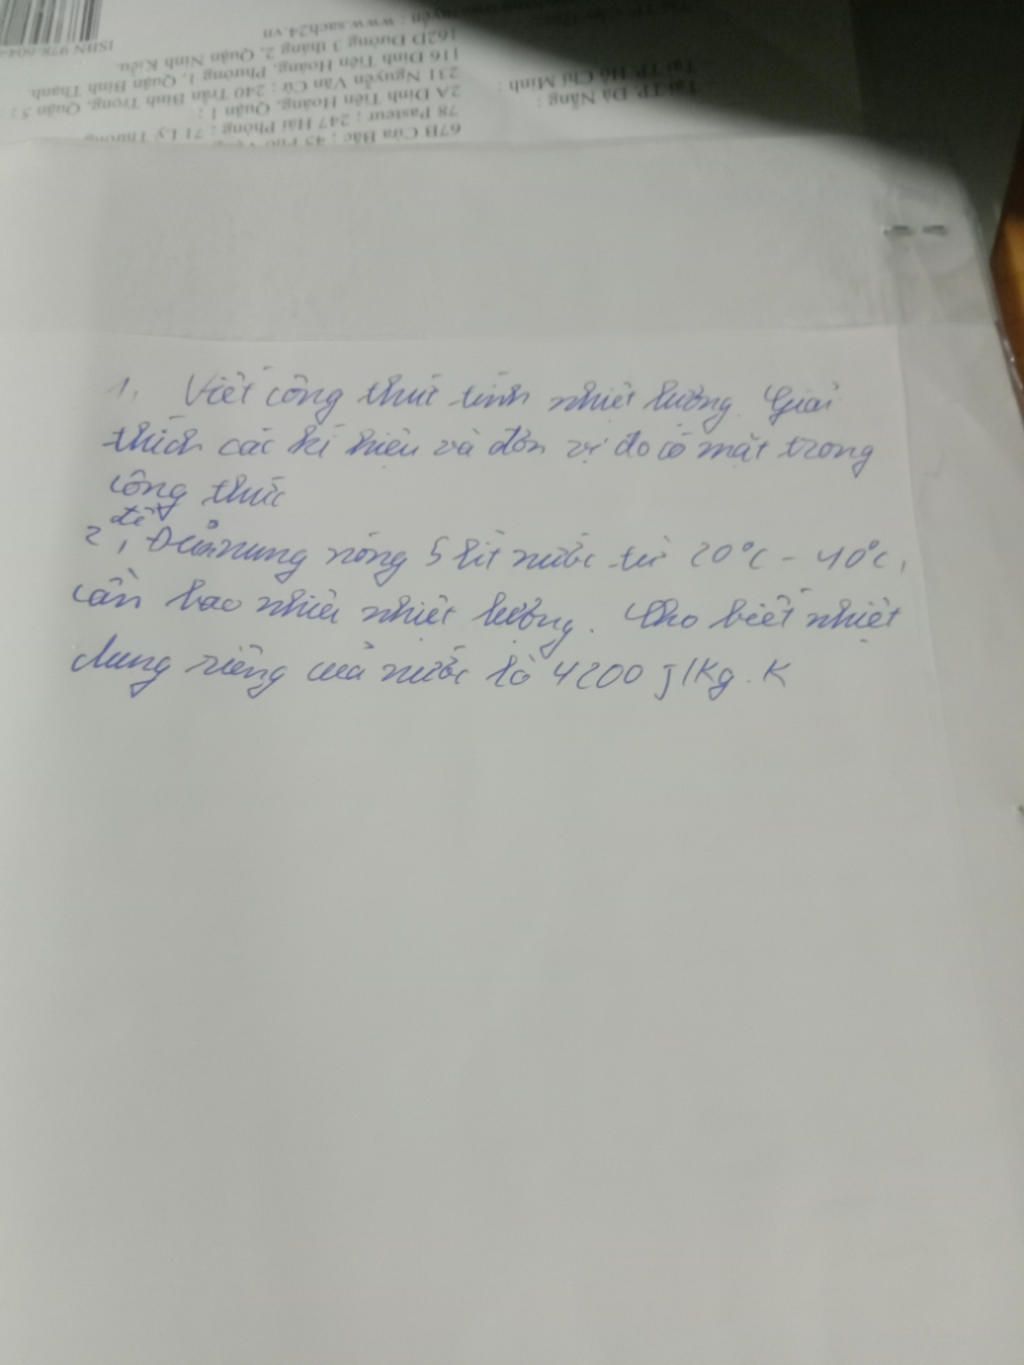 ISBN 978-604
162D Đường 3 tháng 2, Quận Ninh Kiều.
116 Đinh Tiên Hoàng, Phường 1, Quận Bình Thạnh.
231 Nguyễn Văn Cừ ; 240 Trần Bình Trọng, Quận 5 ;
2A Đinh Tiên Hoàng, Quận 1 ;
78 Pasteur ; 247 Hải Phòng ; 71 Lý Thường
67B Cửa Bắc ; 45 Phố
: www.sach24.vn
Tại TP Hồ Chí Minh :
Tại TP Đà Nẵng :
1, Viết công thức tính nhiệt lượng. Giải
thích các kí hiệu và đơn vị đo có mặt trong
công thức
2, để đun nung nóng 5 lít nước từ 20°C - 40°C,
cần bao nhiêu nhiệt lượng. Cho biết nhiệt
dung riêng của nước là 4200 J/Kg.K